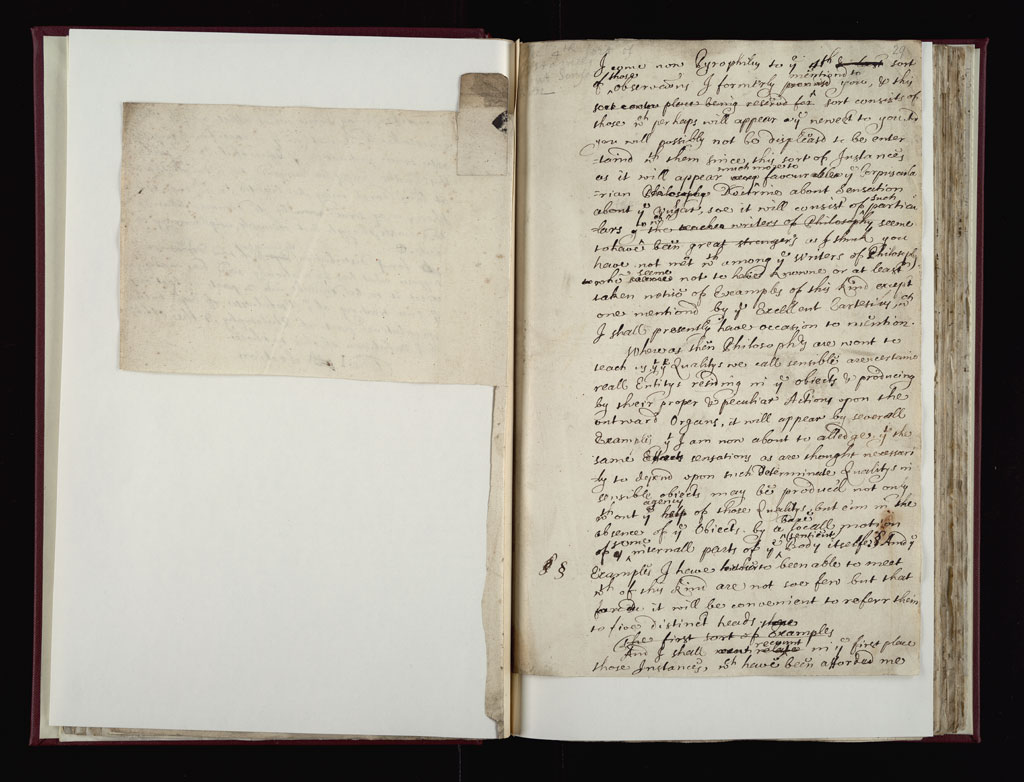 29
I come now Pyrophilus to yͤ 4th & last sort
of those observations I formerly mentiond to promisd you, & this
place being reserv'd for sort consists of
those wch perhaps will appear yͤ newest to you &
you will possibly not be displeas'd to be enter
-taind wth them since this sort of Instances
as it will appear much more to very favourable yͤ Corpuscula
-rian Philosophy Doctrine about Sensation
about yͤ vulgar, soe it will consist of such particu
lars as to yͤ writers of Philosophy seeme
to have been great strangers as I think you
have not met wth among yͤ writers of Philosophy
who seeme not to have knowne or at least
taken notice of Examples of this kind except
one mentiond by yͤ Excellent Cartesius, wch
I shall presently have occasion to mention.
Whereas then Philosophers are wont to
teach us yt yͤ Qualitys we call sensible are certaine
reall Entitys residing in yͤ objects & producing
by their proper & peculiar Actions upon the
outward Organs, it will appear by severall
Examples yt I am now about to alledge yt the
same Effects sensations as are thought necessari
ly to depend upon such Determinate Qualitys in
sensible objects may be produced not only
wthout yͤ agency help of those Qualitys, but e'en in the
absence of yͤ Object, by a bare locall motion
of some of yͤ internall parts of yͤ sentient Body itselfe. And yͤ
§ §
Examples I have been able to meet
wth of this kind are not soe few but that
it will be convenient to referr them
to five distinct heads
The first sort of Examples
And I shall recount relate in yͤ first place
those Instances, wch have been afforded me